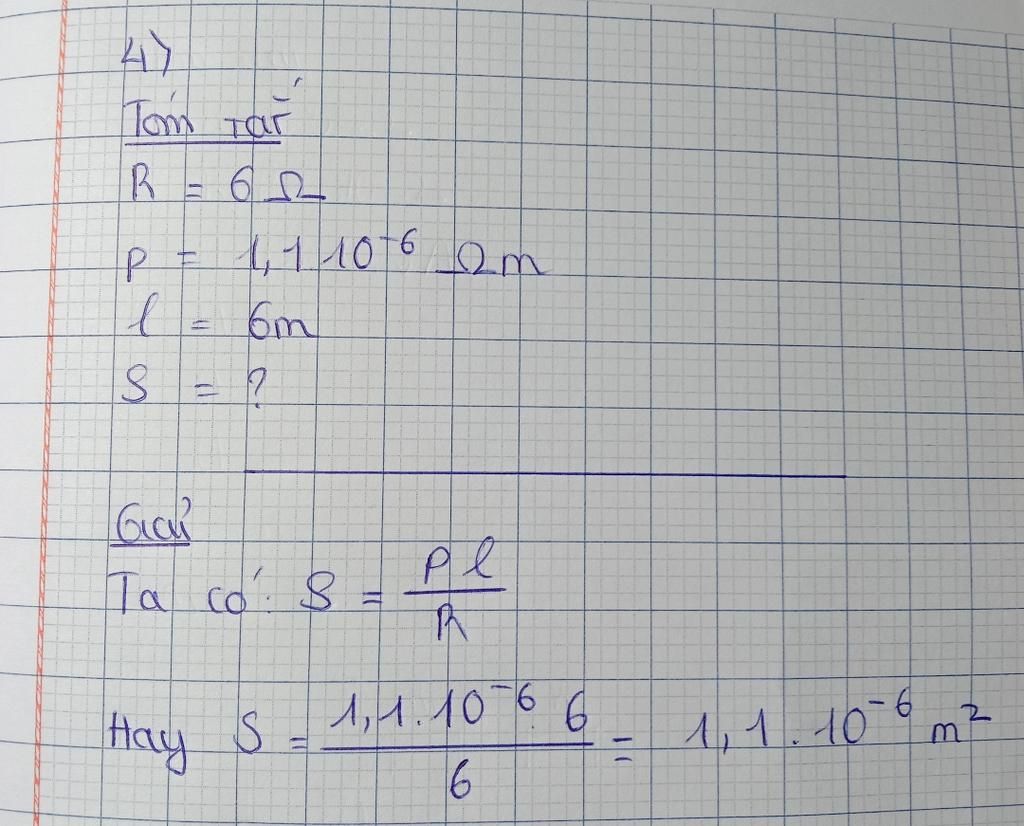 4)
Tóm tắt
R = 6 Ω
ρ = 1,1 10⁻⁶ Ωm
l = 6m
S = ?
Giải
Ta có: S = ρl/R
Hay S = 1,1.10⁻⁶.6/6 = 1,1.10⁻⁶ m²